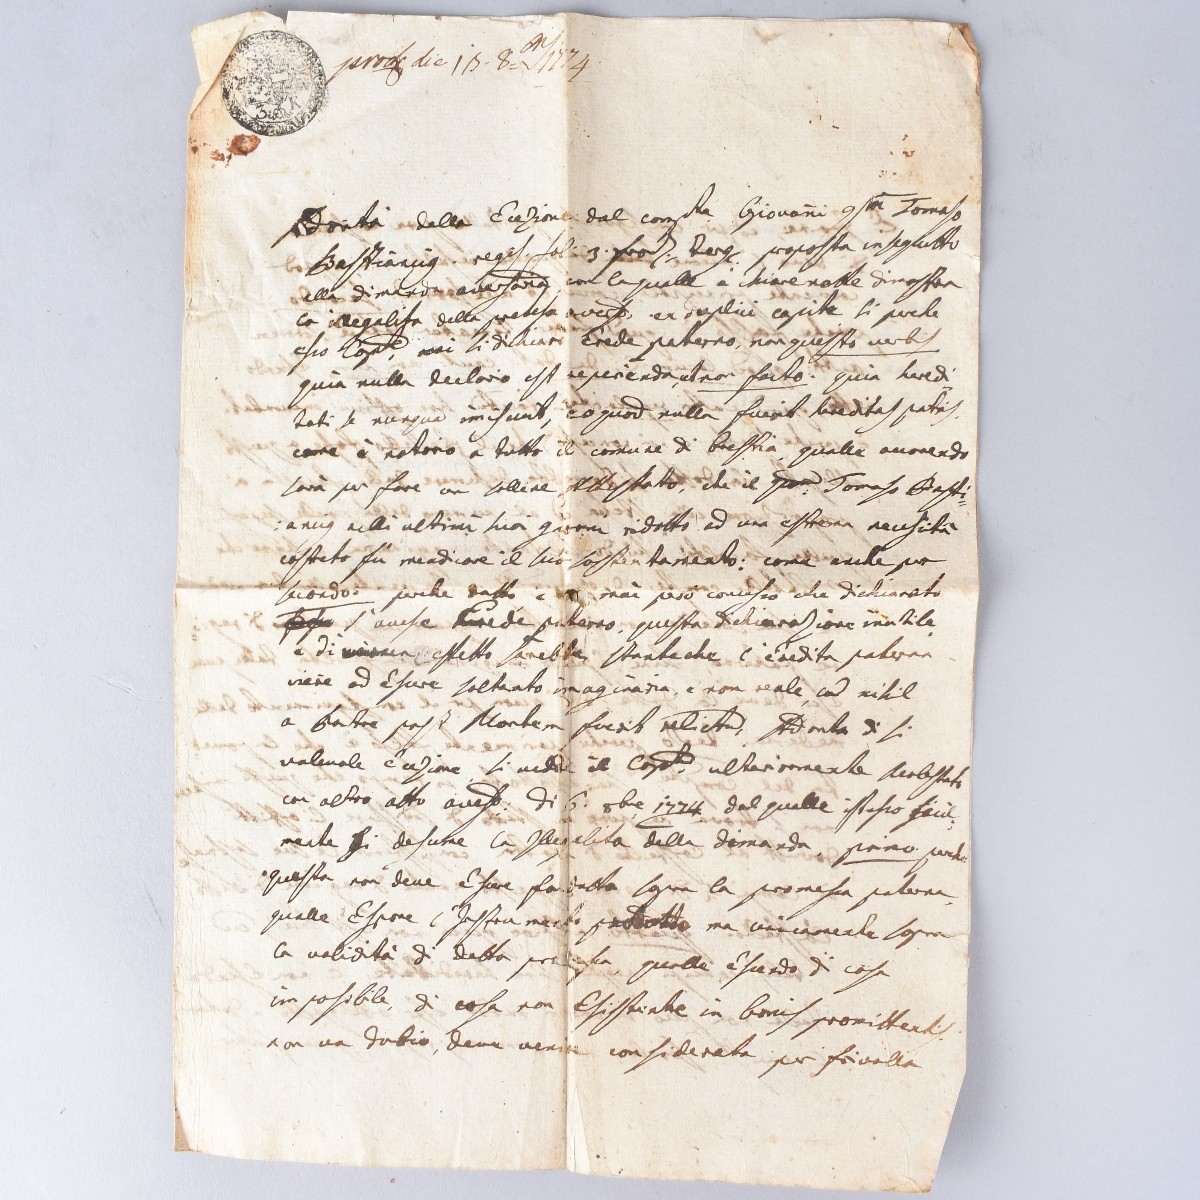 die 15. 8bris 1774
Adonta della Ecezione dal Giovañi qm Tomaso
Bastianig regis. fol. 3. proposta in seguito
alla dimanda con la qualle a chiare notte dimostra
la illegalita della pretesa avers. ex duplici capite si perche
esso mai si dichiarò Erede paterno, non questo verbis
quia nulla est reperienda, et non facto. quia heredi
tati se nunqua imiscuit, eoquod nulla fuerit hereditas patãs.
come è notorio a tutto il comune di qualle auorendo
sarà per fare un che il qm. Tomaso Basti=
:anig nelli ultimi suoi giorni ridotto ad una estrema necesità
costreto fù mendicare il suo sostentamento: come anche per
secondo: perche datto e mai però concesso che dichiarato
s'avese Erede paterno, questa dichiarazione inutile,
e di efetto sarebbe, stanteche l'eredità paterna
viene ad Esere soltanto imaginaria, e non reale, cum nihil
a Patre post Mortem fuerit relictum, Adonta di si
valevole ecezione, si vedde il Copte. ulteriormente Molestato
con altro atto avers. di 6. 8bre 1774 dal qualle istesso facil=
mente si desume la Illegalita della dimanda, primo perche
questa non deve Esere fondatta sopra la promessa paterna,
qualle Espone l'Instrumento ma unicamente sopra
la validità di detta promessa, qualle esendo di cosa
imposibile, di cosa non Esistente in bonis promittentis
non va dubio, deve venire considerata per frivolla